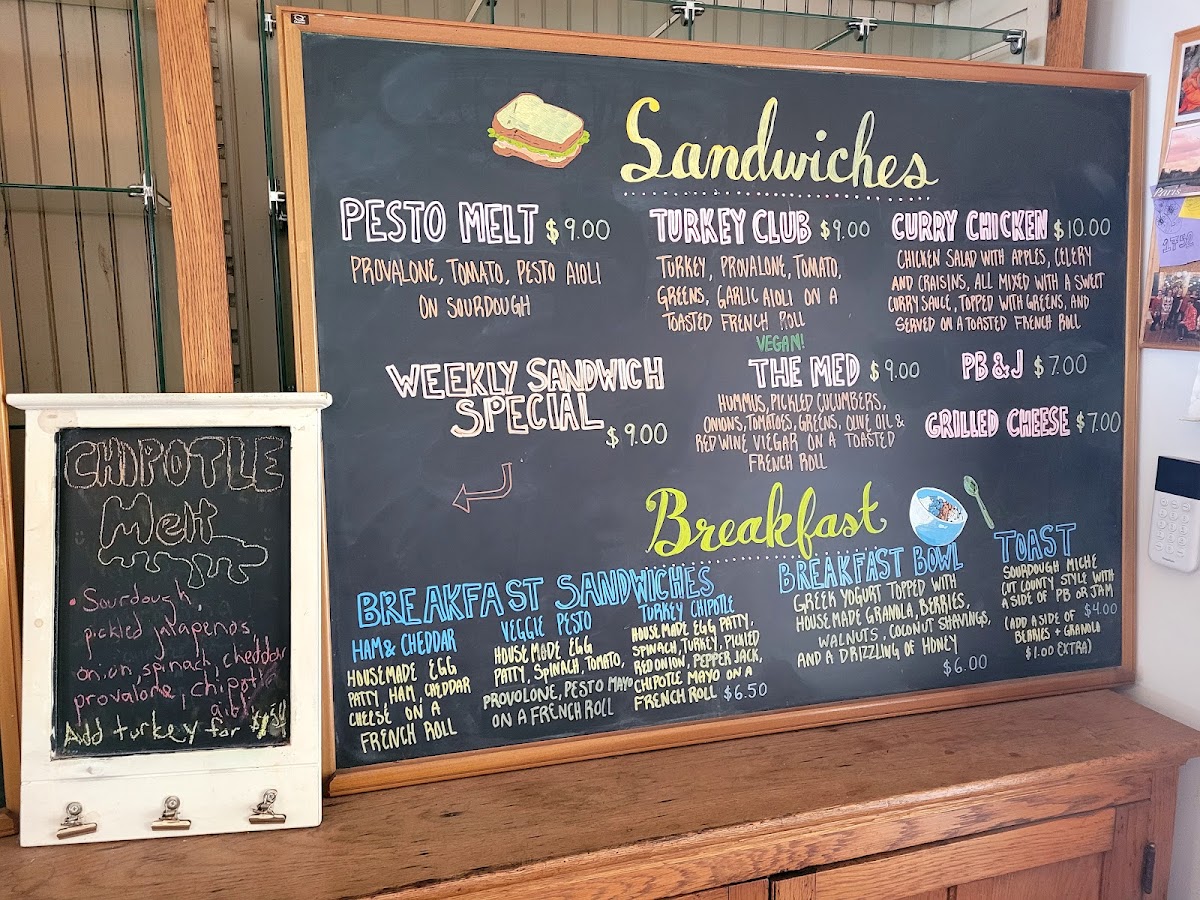 Sandwiches
PESTO MELT $9.00
PROVALONE, TOMATO, PESTO AIOLI
ON SOURDOUGH
TURKEY CLUB $9.00
TURKEY, PROVALONE, TOMATO,
GREENS, GARLIC AIOLI ON A
TOASTED FRENCH ROLL
CURRY CHICKEN $10.00
CHICKEN SALAD WITH APPLES, CELERY
AND CRAISINS, ALL MIXED WITH A SWEET
CURRY SAUCE, TOPPED WITH GREENS, AND
SERVED ON A TOASTED FRENCH ROLL
WEEKLY SANDWICH
SPECIAL
$9.00
VEGAN!
THE MED $9.00
HUMMUS, PICKLED CUCUMBERS,
ONIONS, TOMATOES, GREENS, OLIVE OIL &
RED WINE VIEGAR ON A TOASTED
FRENCH ROLL
PB & J $7.00
GRILLED CHEESE $7.00
Breakfast
BREAKFAST SANDWICHES
HAM & CHEDDAR
HOUSEMADE EGG
PATTY HAM CHEDDAR
CHEESE ON A
FRENCH ROLL
VEGGIE PESTO
HOUSEMADE EGG
PATTY, SPINACH, TOMATO,
PROVOLONE, PESTO MAYO
ON A FRENCH ROLL
TURKEY CHIPOTLE
HOUSEMADE EGG PATTY,
SPINACH, TURKEY, PICKLED
RED ONION, PEPPER JACK,
CHIPOTLE MAYO ON A
FRENCH ROLL $6.50
BREAKFAST BOWL
GREEK YOGURT TOPPED WITH
HOUSEMADE GRANOLA, BERRIES,
WALNUTS, COCONUT SHAVINGS,
AND A DRIZZLING OF HONEY
$6.00
TOAST
SOURDOUGH MICHE
CUT COUNTY STYLE WITH
A SIDE OF PB OR JAM
$4.00
(ADD A SIDE OF
BERRIES + GRANOLA
$1.00 EXTRA)
CHIPOTLE
Melt
• Sourdough,
pickled jalapenos,
onion, spinach, cheddar
provalone, chipotle
Add turkey for
Paris